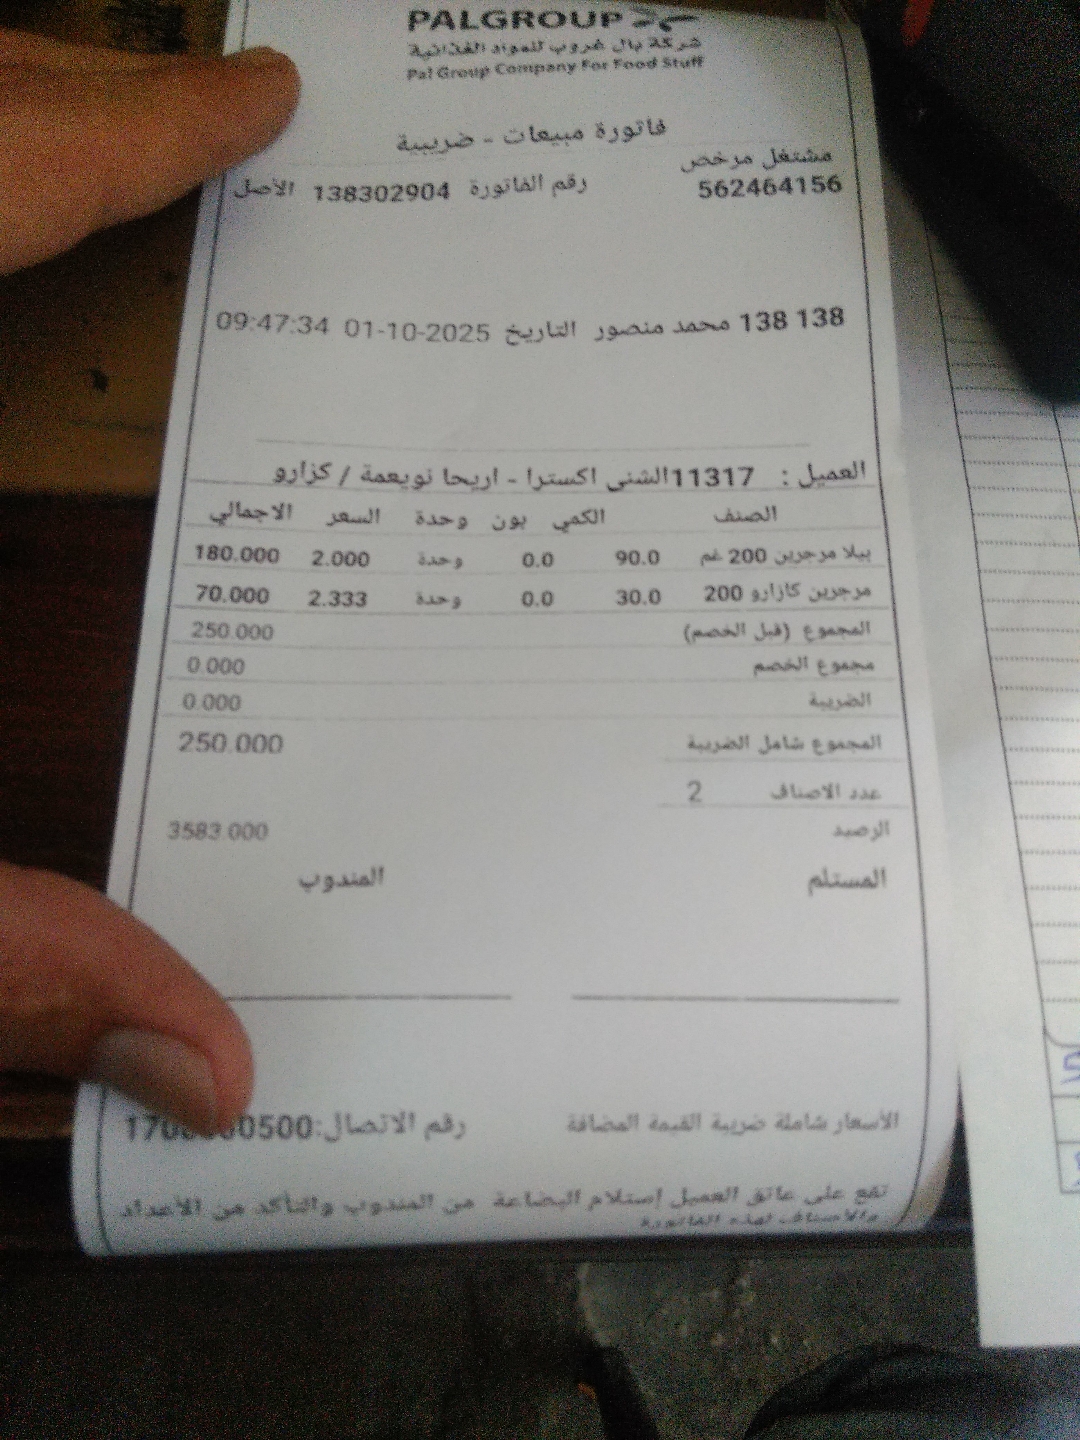 PALGROUP
شركة بال غروب للمواد الغذائية
Pal Group Company For Food Stuff
فاتورة مبيعات - ضريبية
مشتغل مرخص
562464156 رقم الفاتورة 138302904 الأصل
138 138 محمد منصور التاريخ 01-10-2025 09:47:34
العميل : 11317الشني اكسترا - اريحا نويعمة / كزارو
الصنف الكمي بون وحدة السعر الاجمالي
بيلا مرجرين 200 غم 90.0 0.0 وحدة 2.000 180.000
مرجرين كازارو 200 30.0 0.0 وحدة 2.333 70.000
المجموع (قبل الخصم) 250.000
مجموع الخصم 0.000
الضريبة 0.000
المجموع شامل الضريبة 250.000
عدد الاصناف 2
الرصيد 3583.000
المستلم المندوب
الأسعار شاملة ضريبة القيمة المضافة رقم الاتصال:
تقع على عاتق العميل إستلام البضاعة من المندوب والتأكد من الأعداد
والأصناف لهذه الفاتورة